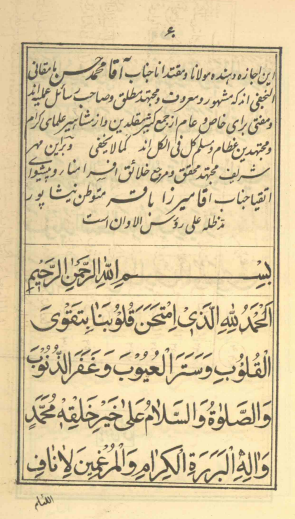 ۶
این اجازه دهنده مولانا و مقتدانا جناب آقا محمد حسن مامقانی
النجفی اند که مشهور و معروف و مجتهد مطلق و صاحب رسائل عملیه اند
و مفتی برای خاص و عام از جمع کثیر مقلدین و از مشاهیر علمای کرام
و مجتهدین عظام و مسلم کل فی الکل اند کما لا یخفی و برین مهر
شریف مجتهد محقق و مرجع خلائق افسر امنا و پیشوای
اتقیا جناب آقا میرزا باقر متوطن نیشاپور
مدظله علی رؤس الاوان است
بِسْمِ اللهِ الرَّحْمٰنِ الرَّحِيْمِ
اَلْحَمْدُ لِلّٰهِ الَّذِیْ اِمْتَحَنَ قُلُوْبَنَا بِتَقْوَی
الْقُلُوْبِ وَسَتَرَ الْعُیُوْبَ وَغَفَرَ الذُّنُوْبَ
وَالصَّلٰوةُ وَالسَّلَامُ عَلٰی خَیْرِ خَلْقِهٖ مُحَمَّدٍ
وَاٰلِهِ الْبَرَرَةِ الْکِرَامِ وَالْمُرْغِمِیْنَ لِاُنَافِ